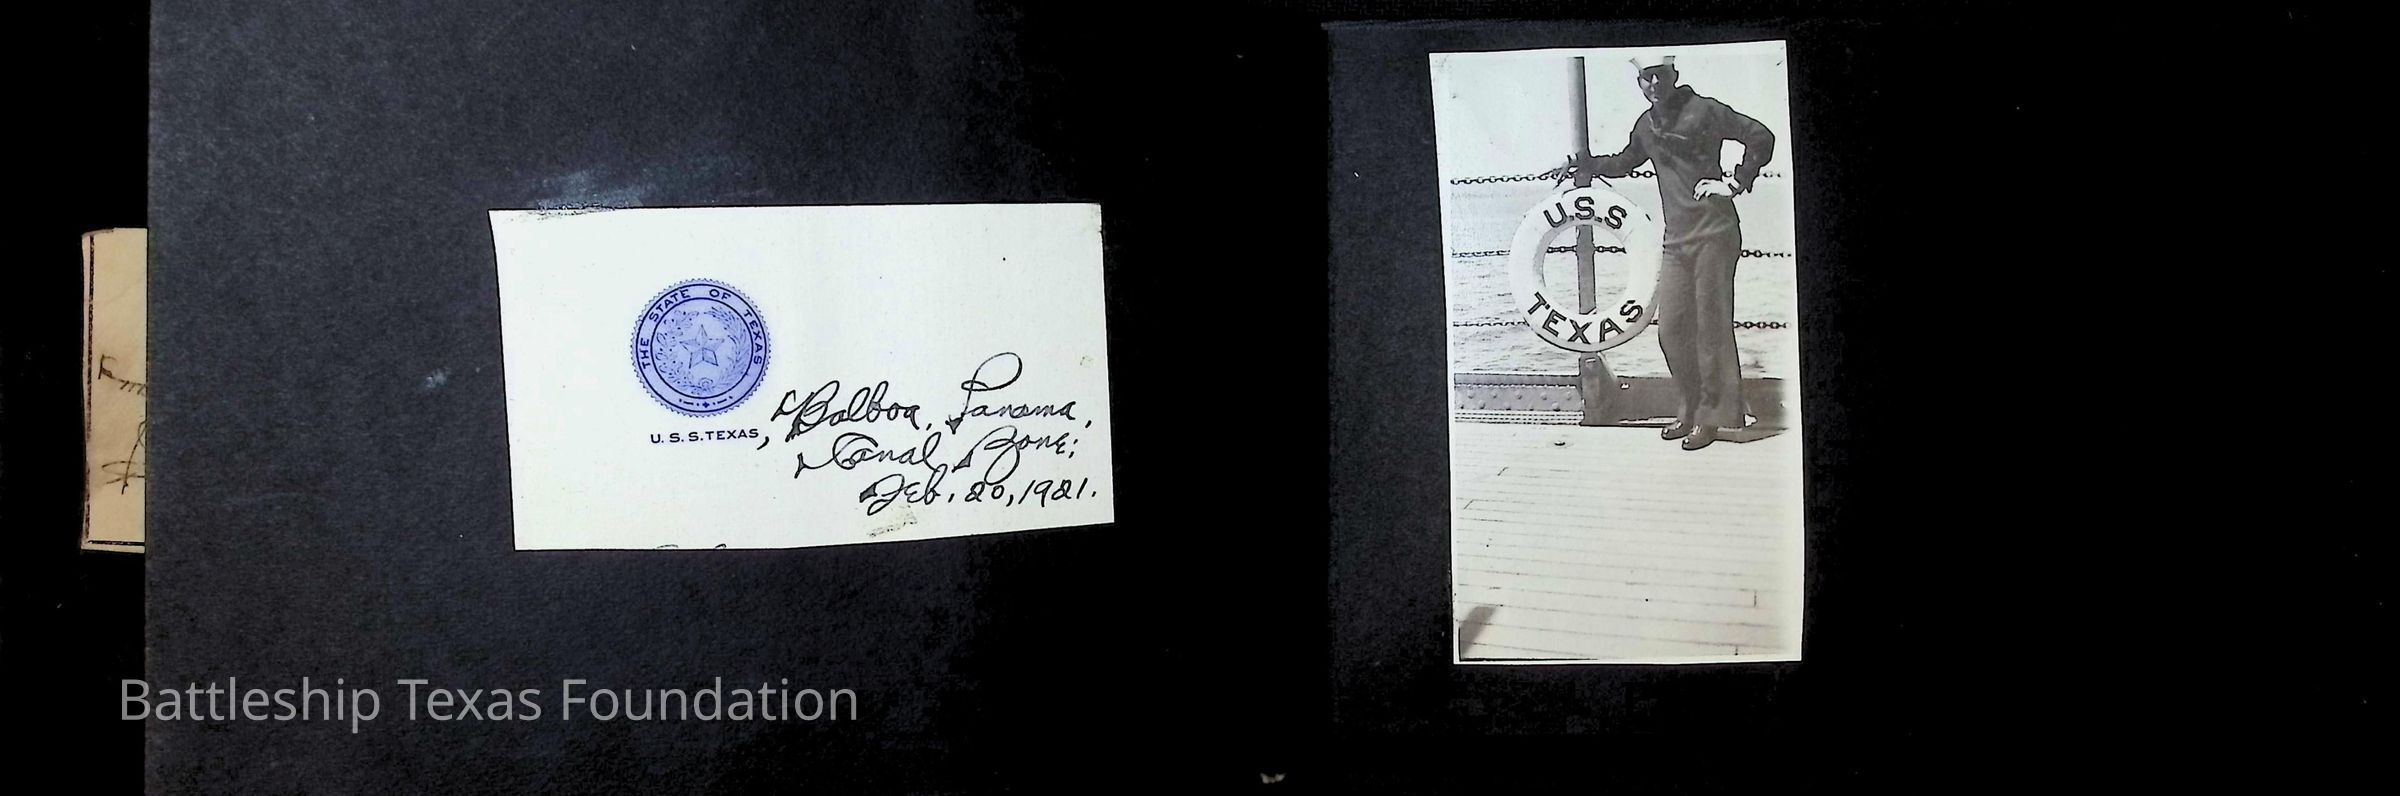 THE STATE OF TEXAS
U.S.S. TEXAS, Balboa, Panama,
Canal Zone;
Feb. 20, 1921.
U.S.S
TEXAS
Battleship Texas Foundation